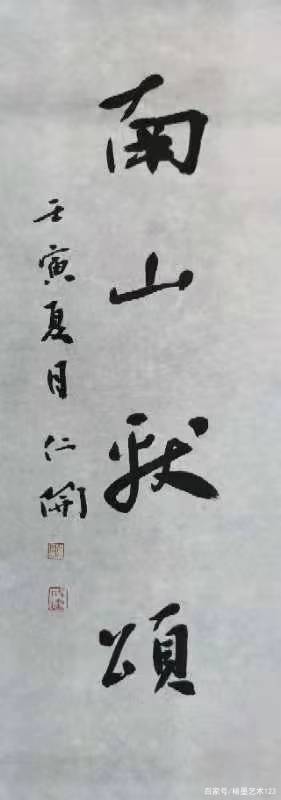 南山献頌
壬寅夏月仁開
百家号/墨艺术123